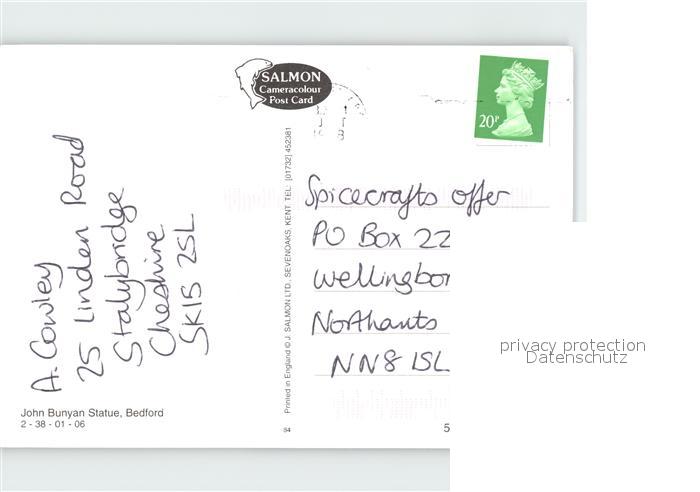 SALMON
Cameracolour
Post Card
20P
A. Cowley
25 Linden Road
Stalybridge
Cheshire
SK15 2SL
Printed in England © J. SALMON LTD., SEVENOAKS, KENT. TEL: (01732) 452381
Spicecrafts offer
PO Box 22
Wellingbor
Northants
NN8 1SL
privacy protection
Datenschutz
John Bunyan Statue, Bedford
2 - 38 - 01 - 06
S4
5